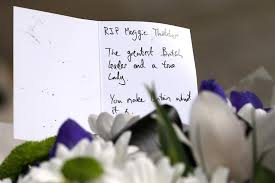 RIP Maggie Thatcher
The greatest British
leader and a true
Lady.
You made Britain what
it is.